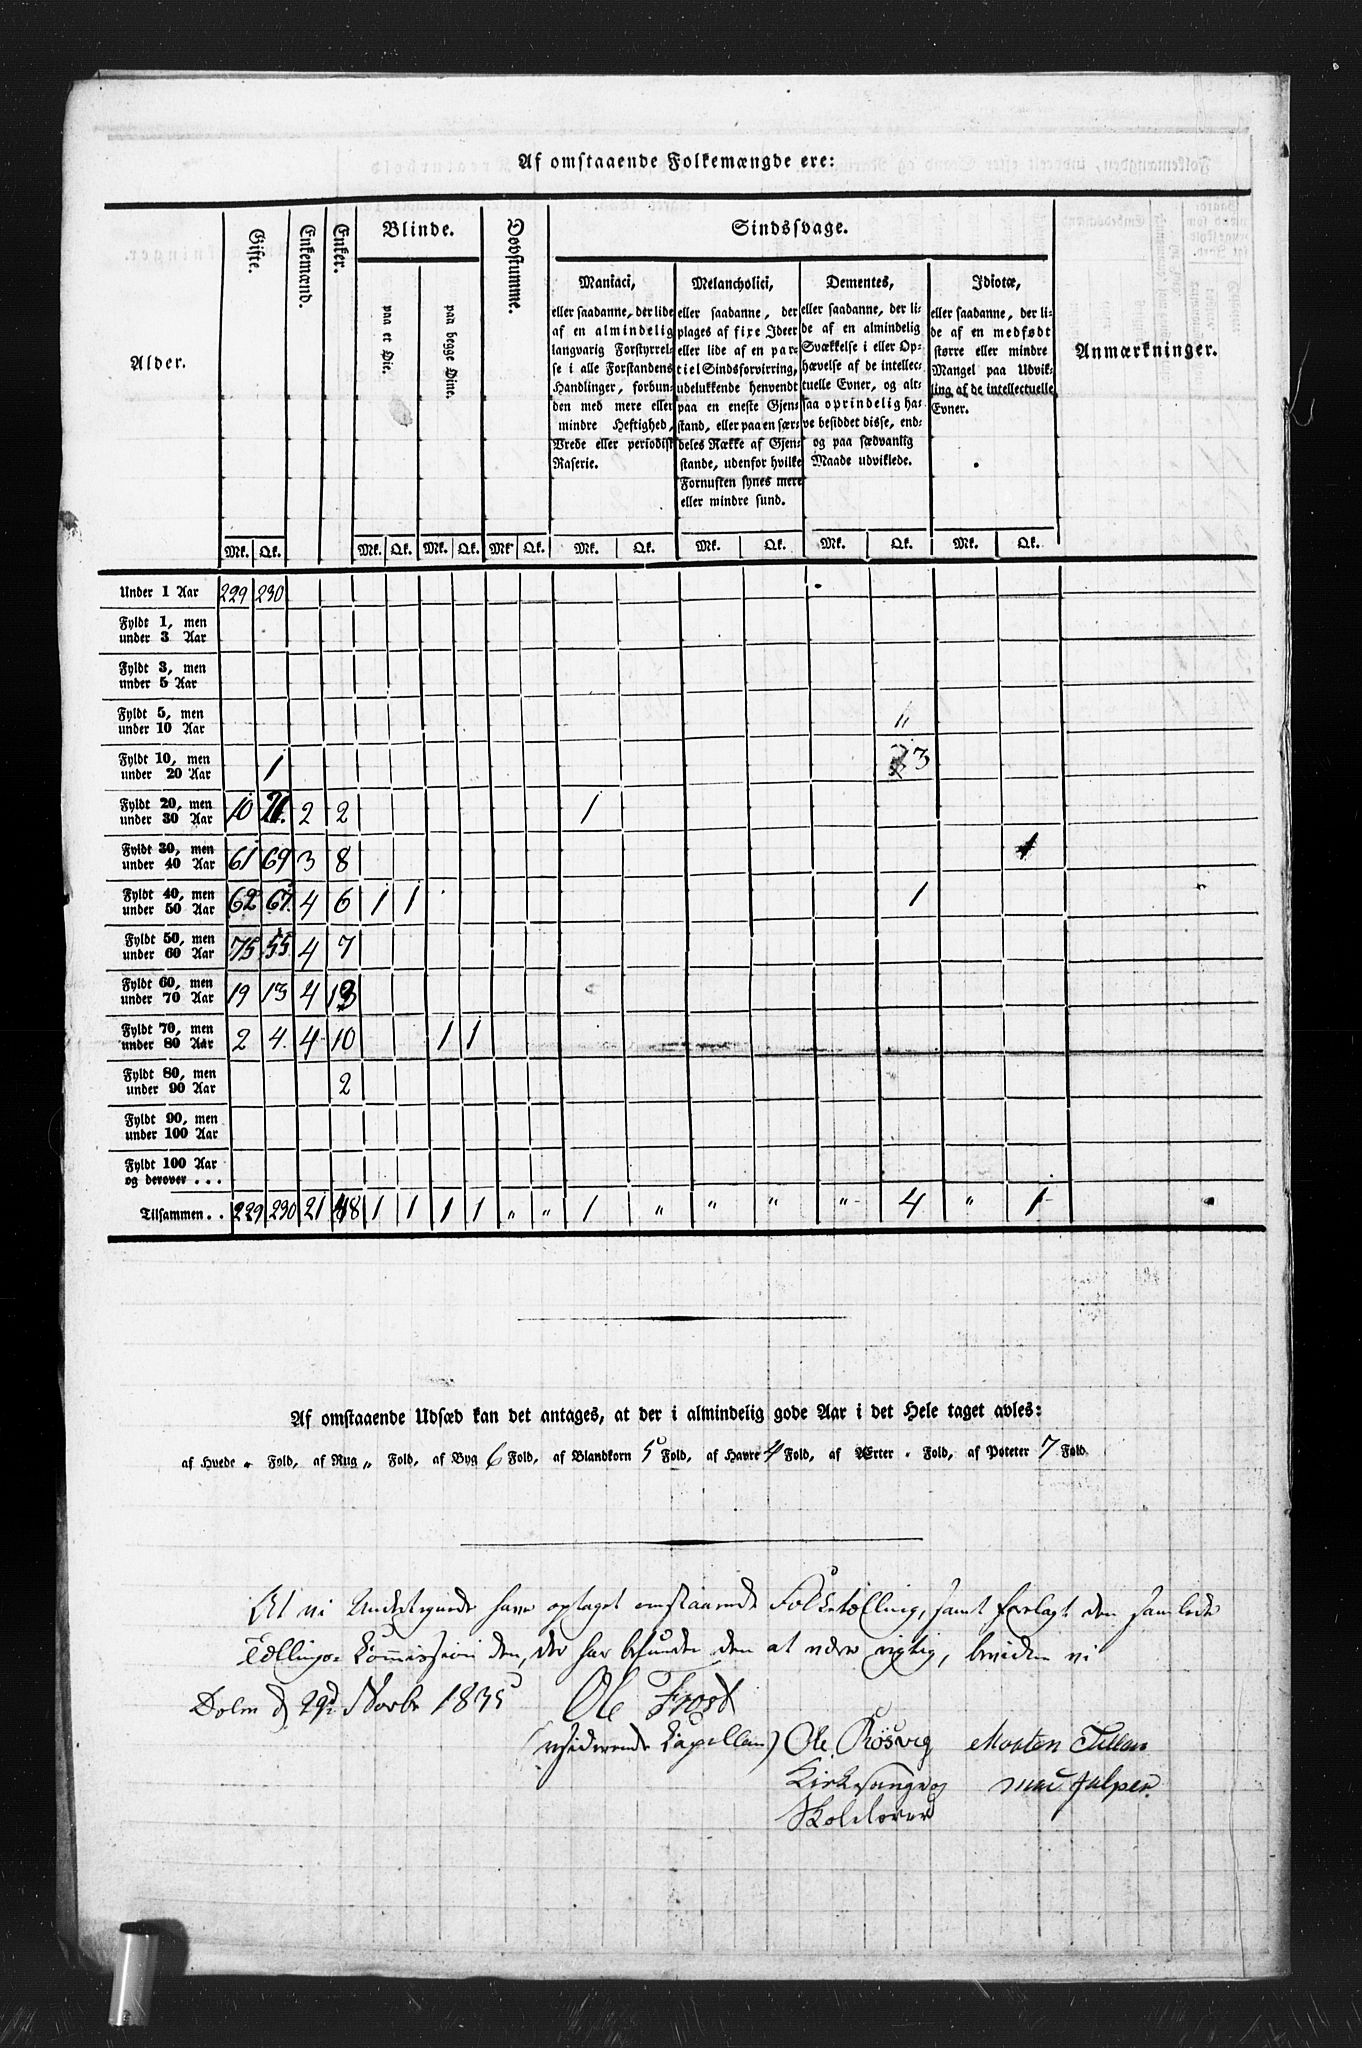 Af omstaaende Folkemængde ere:
Alder. Gifte. Enkemænd. Enker. Blinde. Dovstumme. Sindssvage. Anmærkninger.
paa et Øie. paa begge Øine.
Maniaci,
eller saadanne, der lide
af en almindelig
langvarig Forstyrrel-
se i alle Forstandens
Handlinger, forbun-
den med mere eller
mindre Heftighed,
Vrede eller periodisk
Raserie.
Melancholici,
eller saadanne, der
plages af fixe Ideer
eller lide af en par-
tiel Sindsforvirring,
udelukkende henvendt
paa en eneste Gjen-
stand, eller paa en sær-
deles Række af Gjen-
stande, udenfor hvilke
Fornuften synes mere
eller mindre sund.
Dementes,
eller saadanne, der li-
de af en almindelig
Svækkelse i eller Op-
hævelse af de intellec-
tuelle Evner, og alt-
saa oprindelig ha-
ve besiddet disse, end-
og paa sædvanlig
Maade udviklede.
Idiotæ,
eller saadanne, der li-
de af en medfødt
større eller mindre
Mangel paa Udvik-
ling af de intellectuelle
Evner.
Mk. Qk. Mk. Qk. Mk. Qk. Mk. Qk. Mk. Qk. Mk. Qk. Mk. Qk. Mk. Qk.
Under 1 Aar 229 230
Fyldt 1, men
under 3 Aar
Fyldt 3, men
under 5 Aar
Fyldt 5, men
under 10 Aar "
Fyldt 10, men
under 20 Aar 1 3
Fyldt 20, men
under 30 Aar 10 21. 2 2 1
Fyldt 30, men
under 40 Aar 61 69 3 8 1
Fyldt 40, men
under 50 Aar 62 67. 4 6 1 1 1
Fyldt 50, men
under 60 Aar 75 55 4 7
Fyldt 60, men
under 70 Aar 19 13 4 13
Fyldt 70, men
under 80 Aar 2 4. 4 10 1 1
Fyldt 80, men
under 90 Aar 2
Fyldt 90, men
under 100 Aar
Fyldt 100 Aar
og derover . . .
Tilsammen . . 229 230 21 48 1 1 1 1 " " 1 " " " " 4 " 1
Af omstaaende Udsæd kan det antages, at der i almindelig gode Aar i det Hele taget avles:
af Hvede " Fold, af Rug " Fold, af Byg 6 Fold, af Blandkorn 5 Fold, af Havre 4 Fold, af Ærter " Fold, af Poteter 7 Fold.
At vi Undertegnede have optaget omstaaende Folketælling, samt forelagt den samlede
Tællings-Commission den, der har befundet den at være rigtig, bevidne vi
Dolm d. 29d Novbr 1835 Ole Frost
(residerende Capellan) Ole Røsvig Morten
Kirkesanger og
Skolelærer